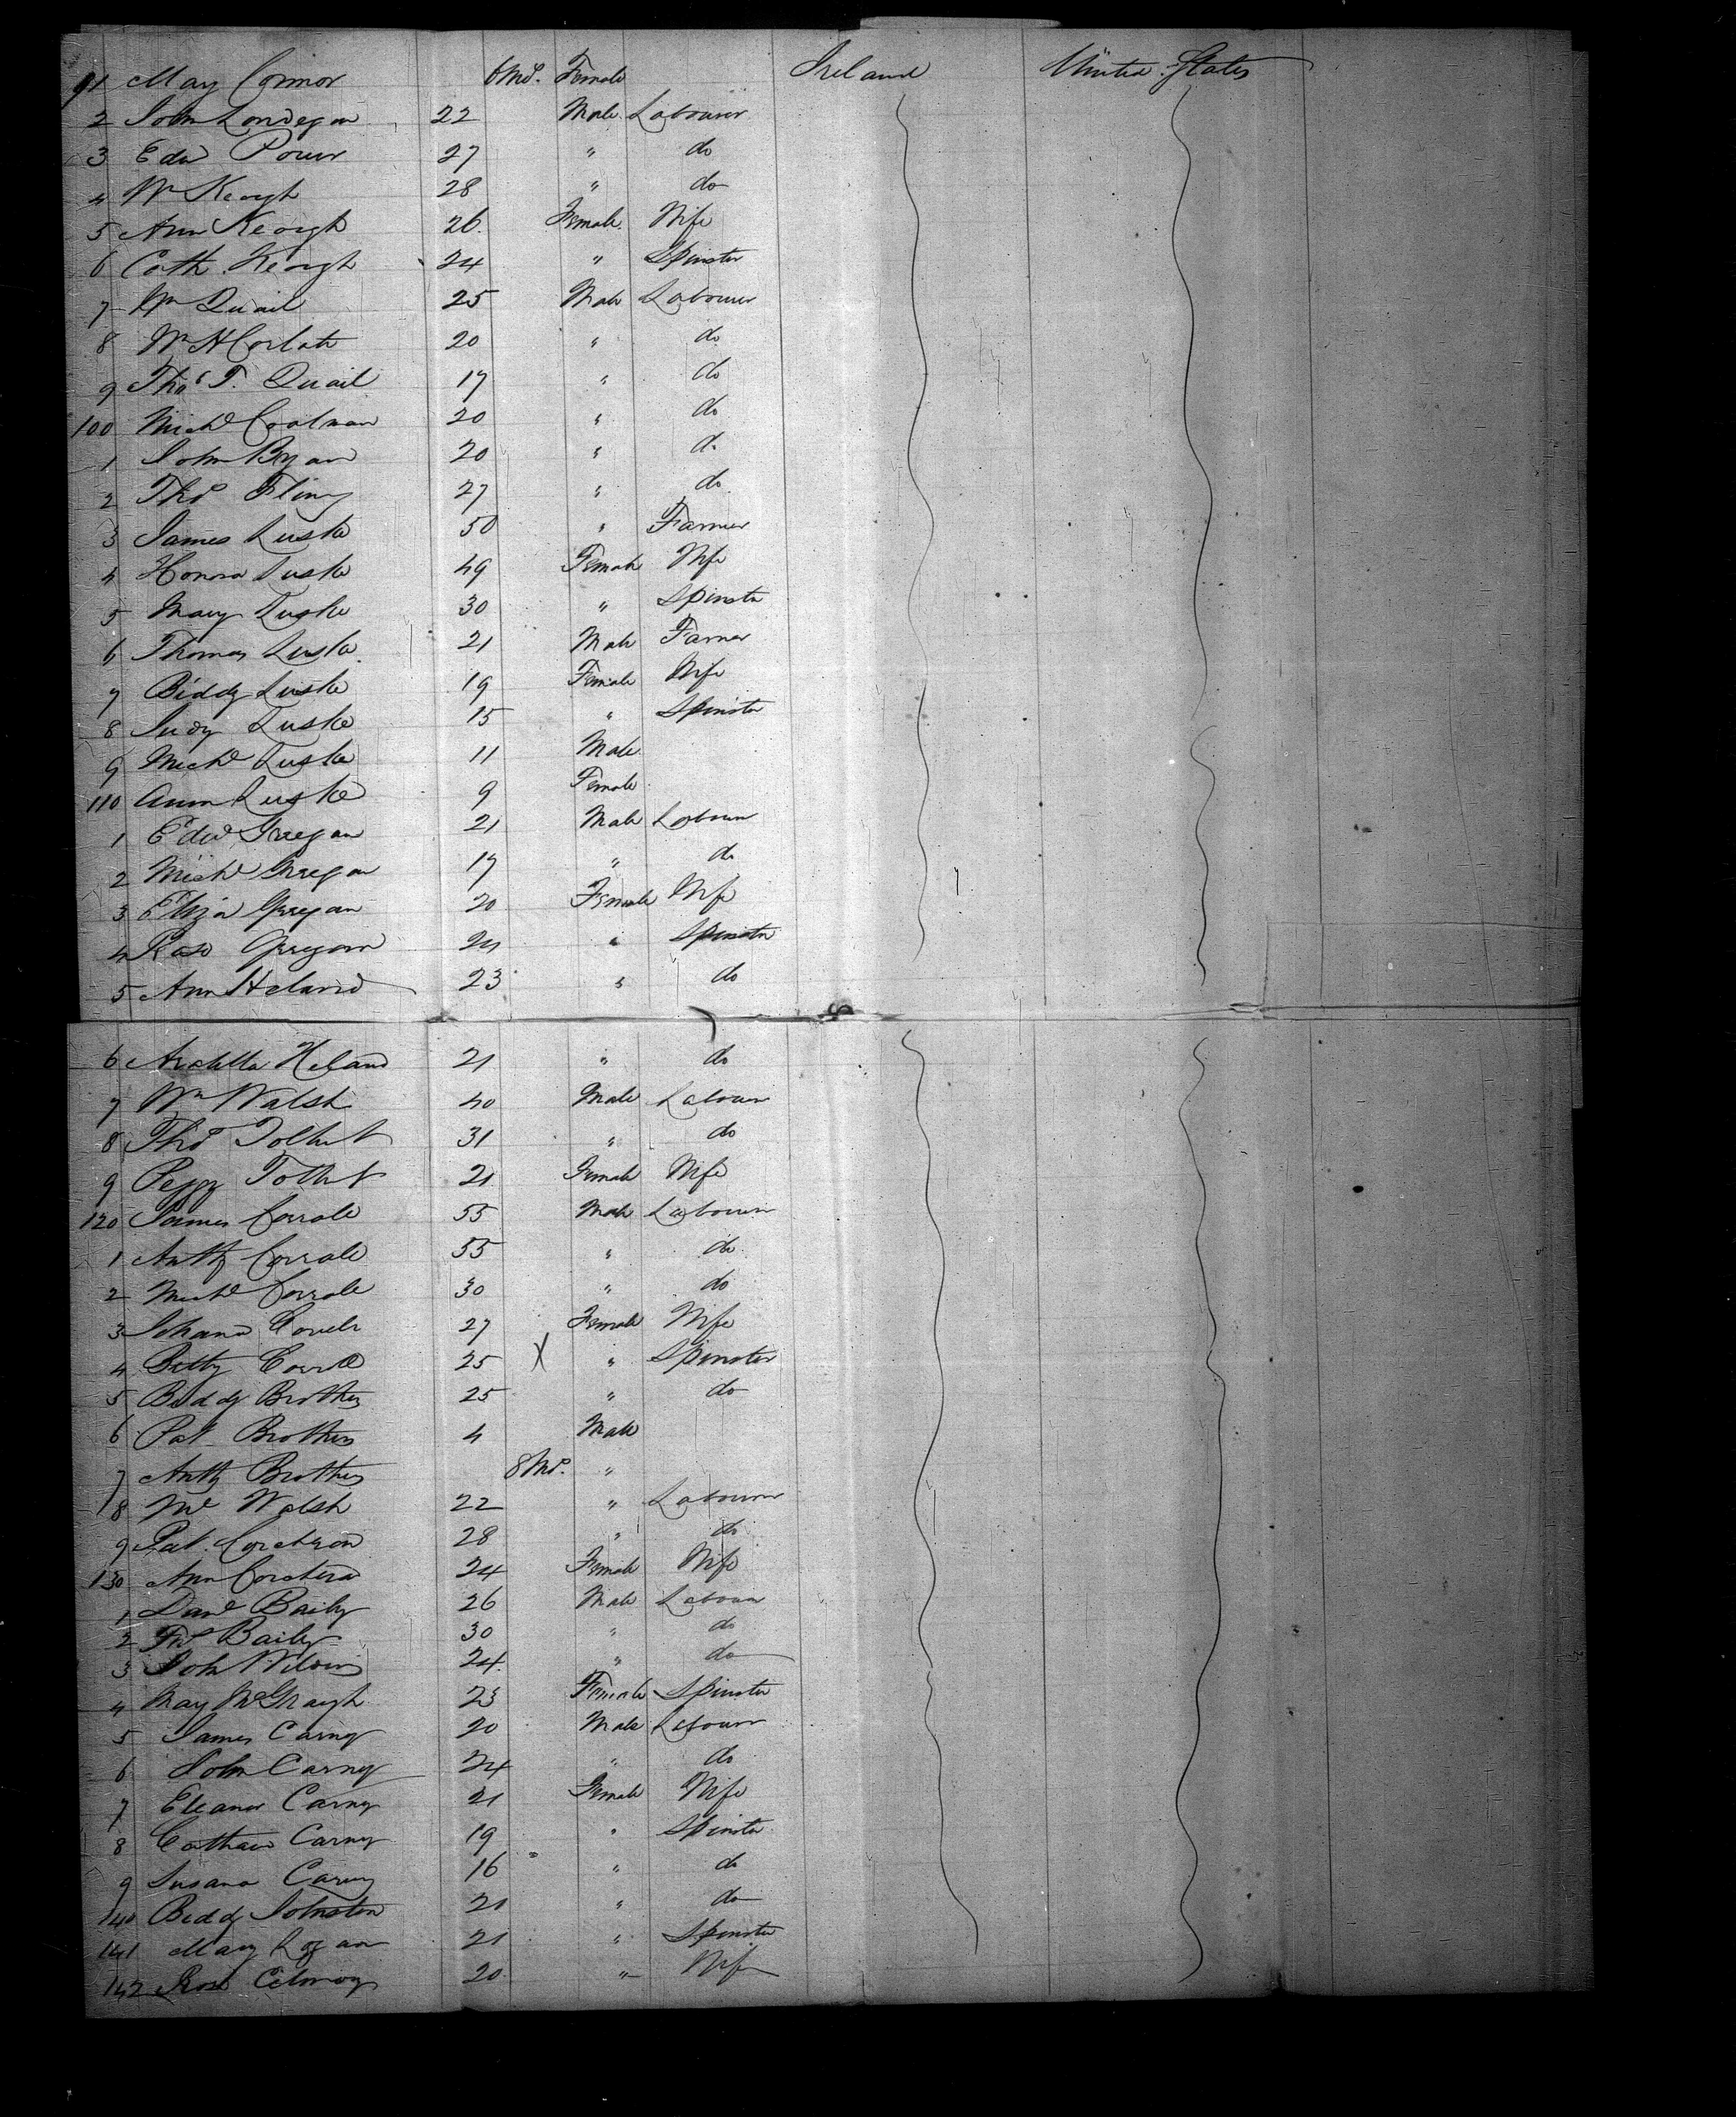 91 May Connor 6 Mos. Female Ireland United States
2 John Londegan 22 Male Labourer
3 Edwd Power 27 " do
4 Wm Keough 28 " do
5 Ann Keough 26 Female Wife
6 Cath. Keough 24 " Spinster
7 Wm Quail 25 Male Labourer
8 Wm H Corlate 20 " do
9 Thos T. Quail 17 " do
100 Michl Coolman 20 " do
1 John Ryan 20 " do
2 Thos Fliny 27 " do
3 James Luske 50 " Farmer
4 Honora Luske 49 Female Wife
5 Mary Luske 30 " Spinster
6 Thomas Luske 21 Male Farmer
7 Biddy Luske 19 Female Wife
8 Judy Luske 15 " Spinster
9 Michl Luske 11 Male
110 Ann Luske 9 Female
1 Edwd Gregan 21 Male Labourer
2 Michl Gregan 19 " do
3 Eliza Gregan 20 Female Wife
4 Rose Gregan 24 " Spinster
5 Ann Heland 23 " do
6 Heland 21 " do
7 Wm Walsh 40 Male Labourer
8 Thos Tolbert 31 " do
9 Peggy Tolbert 21 Female Wife
120 James Corrale 55 Male Labourer
1 Anthy Corrale 55 " do
2 Michl Corrale 30 " do
3 Johana 27 Female Wife
4 Betty 25 X " Spinster
5 Biddy Brothers 25 " do
6 Pat Brothers 4 Male
7 Anthy Brothers 8 Mos. "
8 Walsh 22 " Labourer
9 Pat. Corchran 28 " do
130 Ann Corchran 24 Female Wife
1 Danl Baily 26 Male Labourer
2 Baily 30 " do
3 John 24 " do
4 May McGraugh 23 Female Spinster
5 James Carny 20 Male Labourer
6 John Carny 24 " do
7 Eleanor Carny 21 Female Wife
8 Carny 19 " Spinster
9 Susana Carny 16 " do
140 Biddy Johnston 20 " do
141 Mary Logan 21 " Spinster
142 Rose 20 " Wife